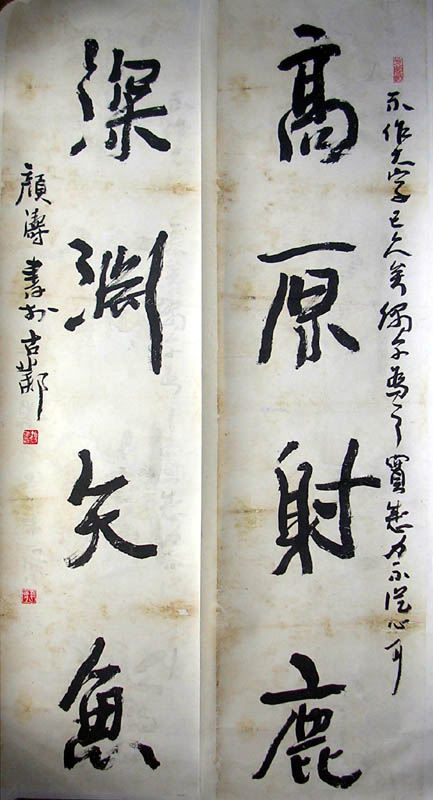 不作大字已久矣偶尔為之實感力不從心耳
高原射鹿
深淵矢魚
顏濤書於古